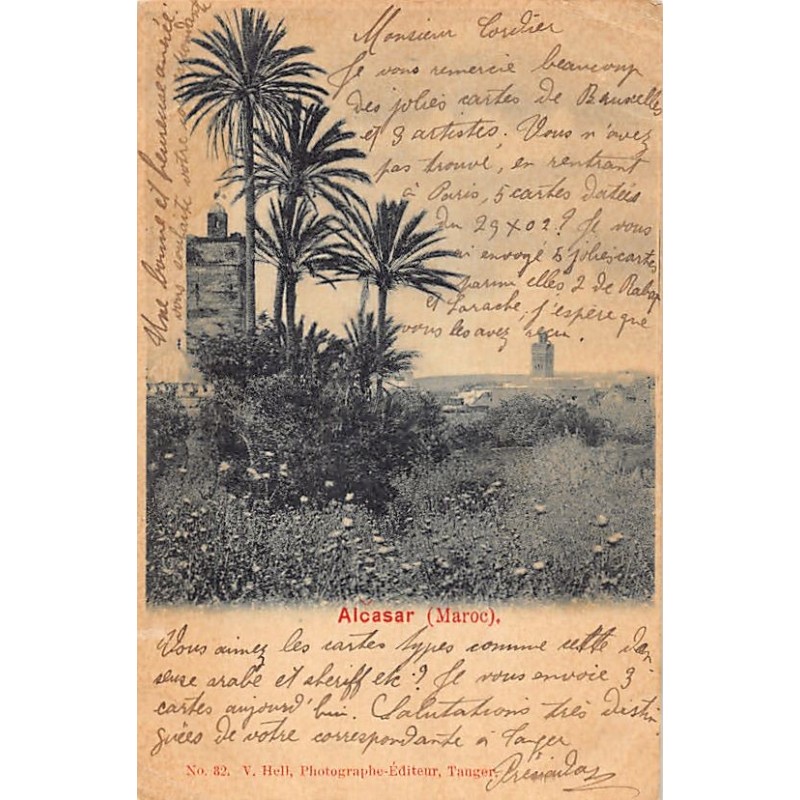 Monsieur Cordier
Je vous remercie beaucoup
des jolies cartes de Bruxelles
et 3 artistes. Vous n'avez
pas trouvé, en rentrant
à Paris, 5 cartes datées
du 29 X 02? Je vous
ai envoyé 5 jolies cartes
parmi elles 2 de Rabat
et Larache, j'espère que
vous les avez reçu.
Une bonne et heureuse année
vous souhaite votre correspondante
Alcasar (Maroc).
Vous aimez les cartes types comme cette dan-
seuse arabe et sheriff etc? Je vous envoie 3
cartes aujourd'hui. Salutations très distin
guées de votre correspondante à Tanger
No. 32. V. Hell, Photographe-Éditeur, Tanger.